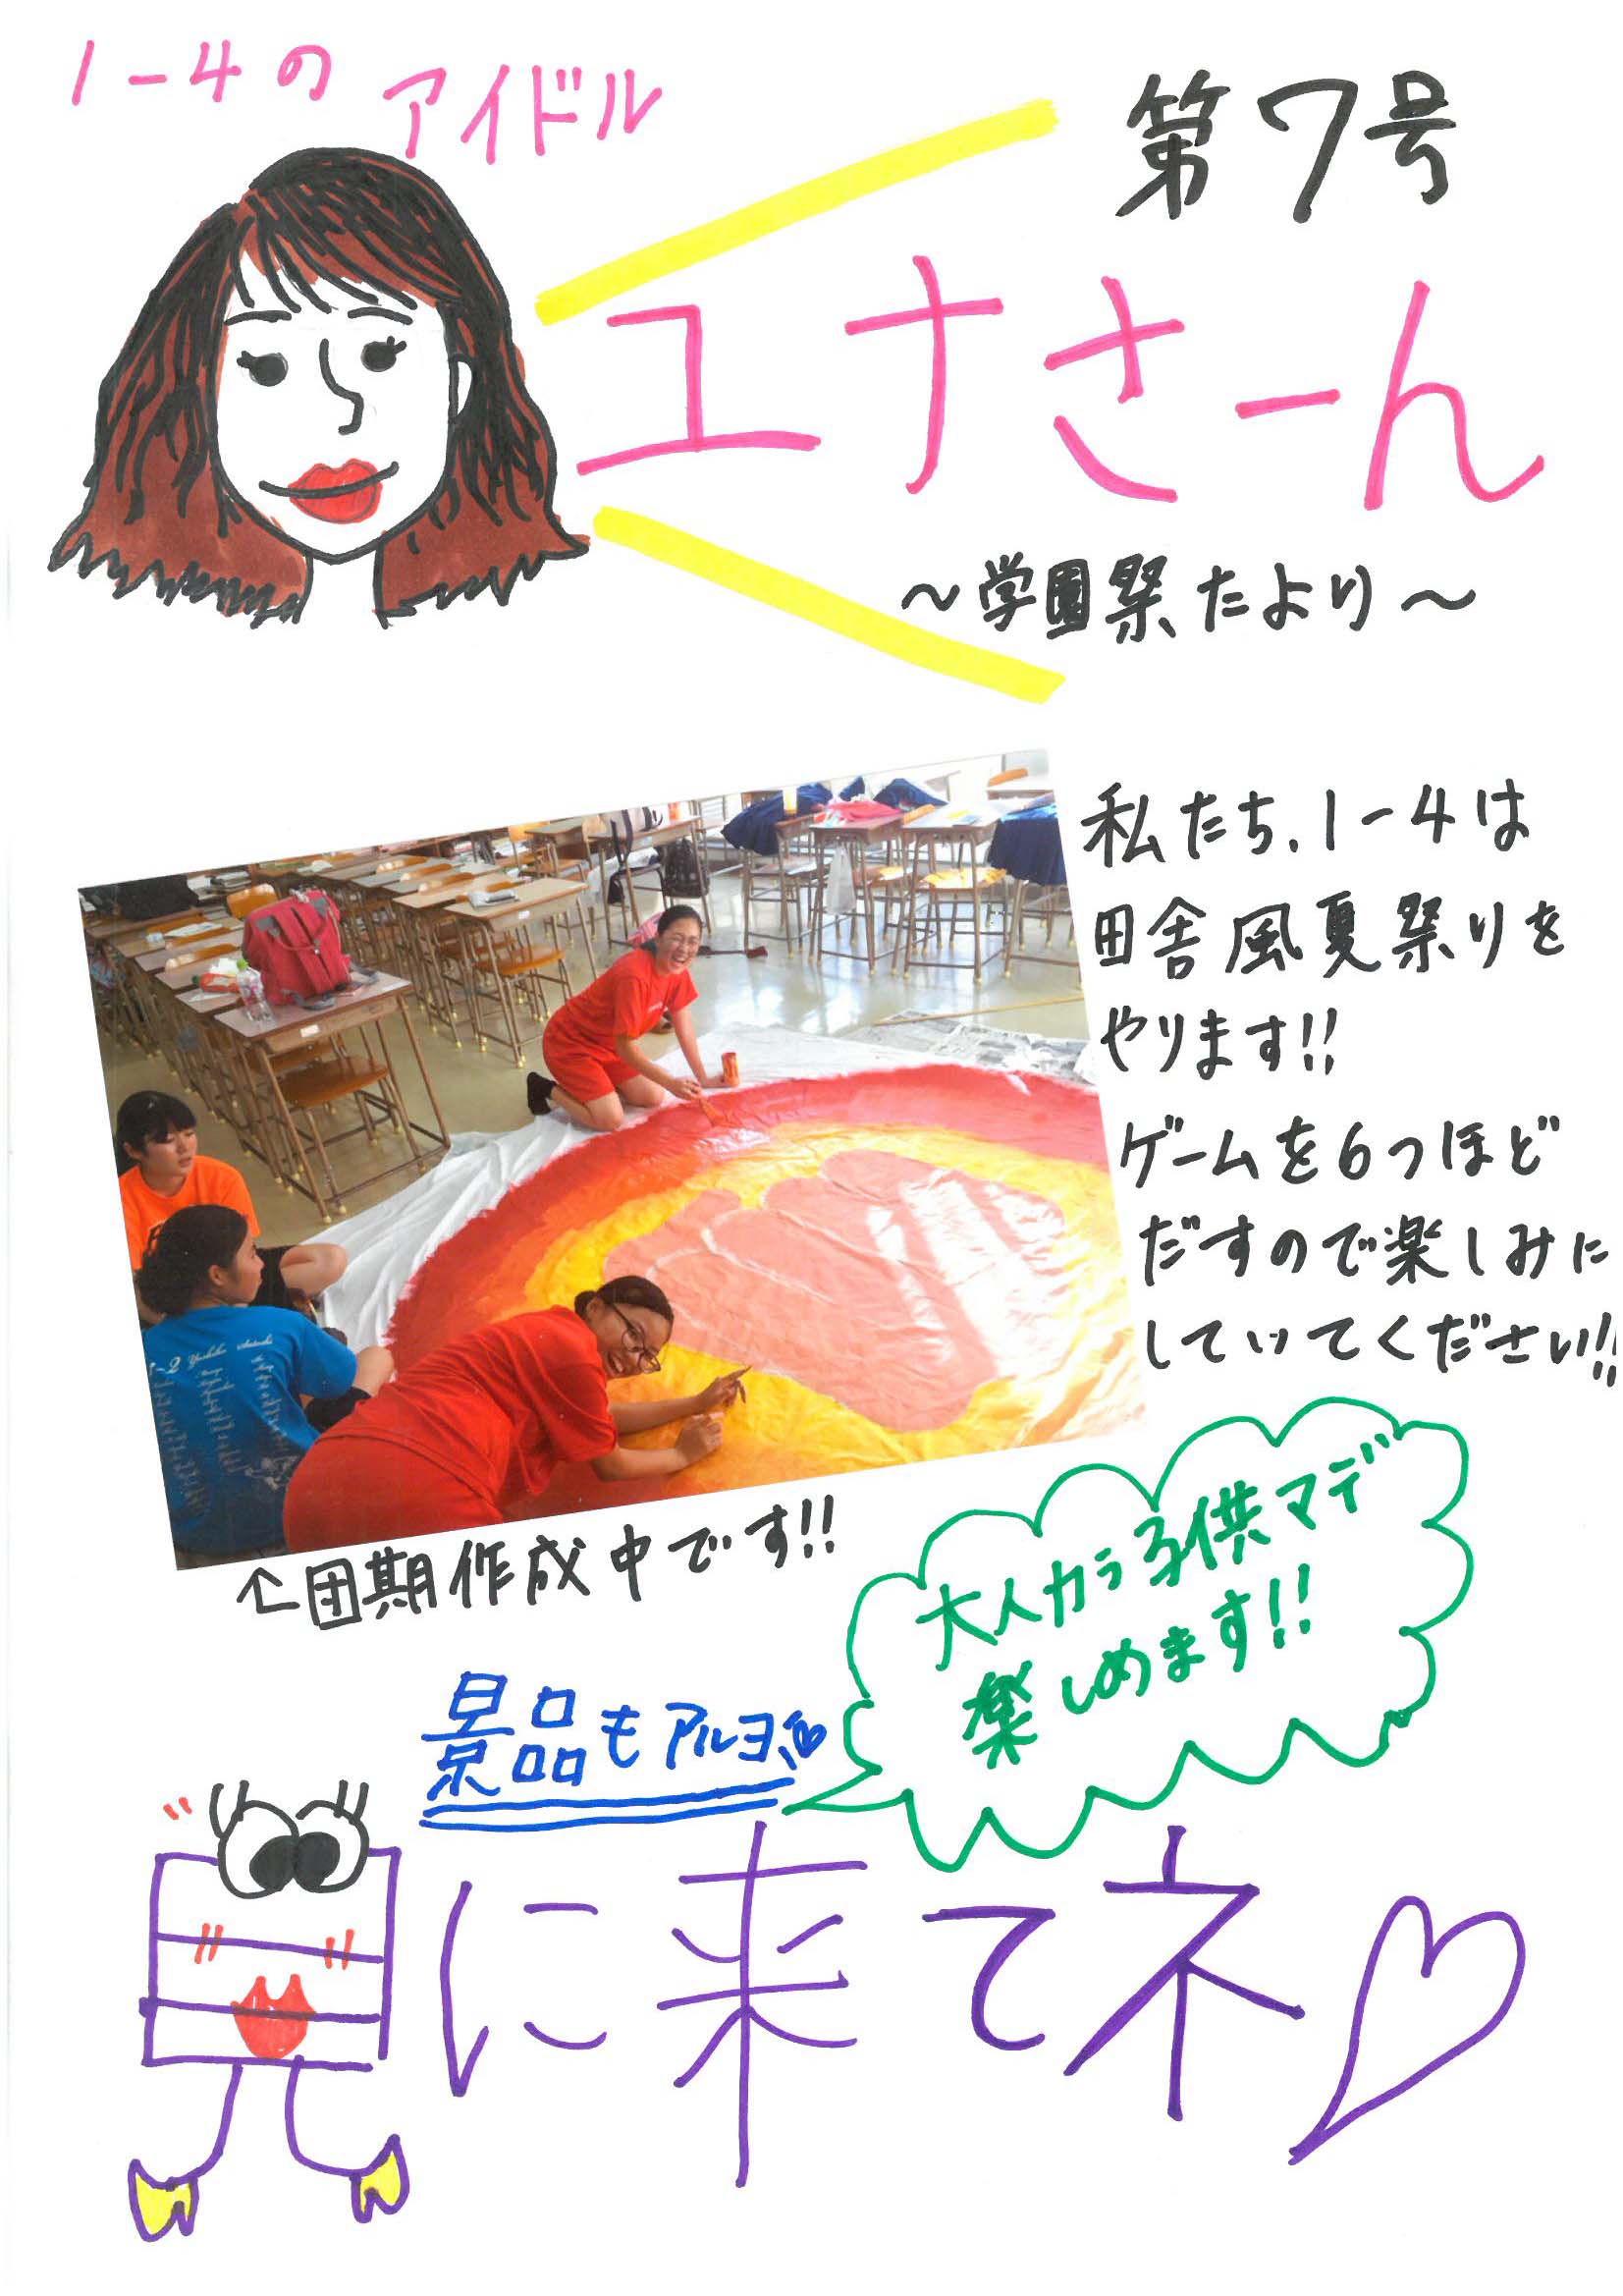 1-4の アイドル
第7号
ユナさーん
～学園祭たより～
私たち、1-4は
田舎風夏祭りを
やります!!
ゲームを6つほど
だすので楽しみに
していてください!!
←団期作成中です!!
大人カラ子供マデ
楽しめます!!
景品もアルヨ♡
見に来てネ♡